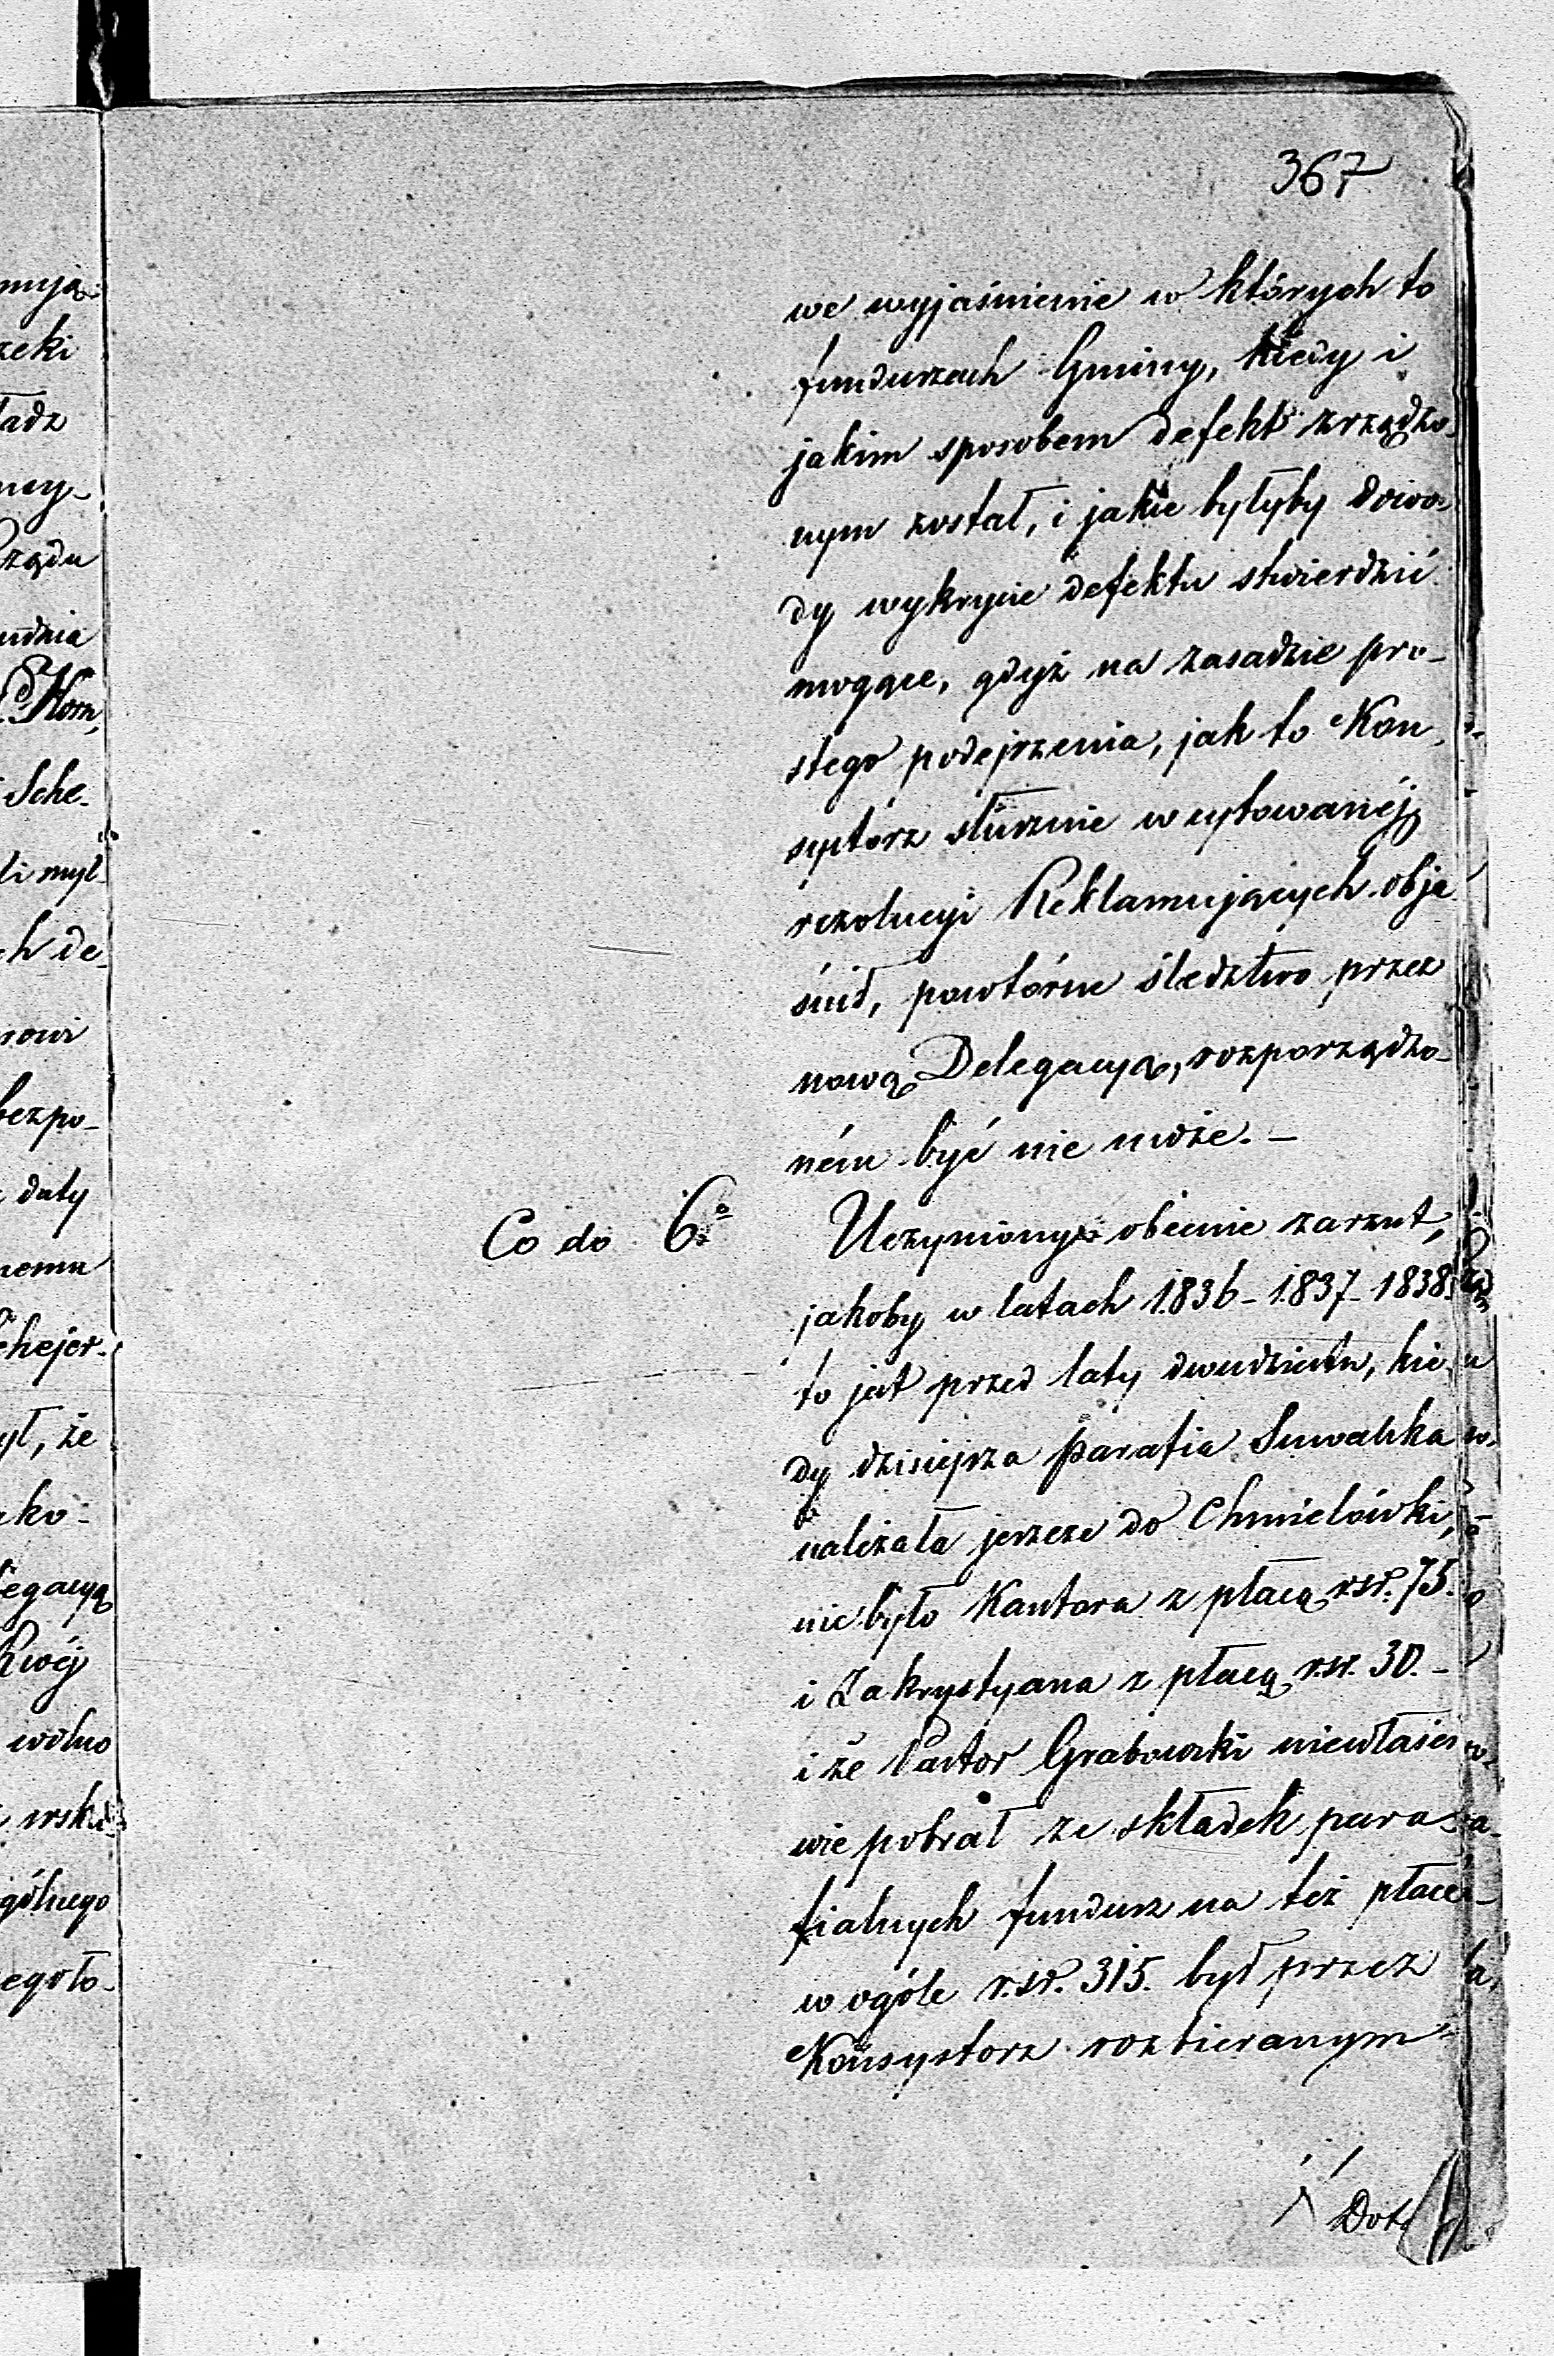 367
we wyjaśnienie w których to
funduszach Gminy, kiedy i
jakim sposobem defekt zrządzo-
nym został, i jakie byłyby dowo-
dy wykrycie defektu stwierdzić
mogące, gdyż na zasadzie pro-
stego podejrzenia, jak to Kon-
systorz słusznie w cytowanéj
rezolucyi Reklamujących obja
śnił, powtórne śledztwo przez
nową Delegacyą, rozporządzo-
ném być nie może. –
Co do 6º Uczyniony obecnie zarzut,
jakoby w latach 1836 - 1837 - 1838.
to jest przed laty dwudziestu, kie-
dy dzisiejsza parafia Suwalska
należała jeszcze do Chmielówki,
nie było Kantora z płacą rsr. 75.
i Zakrystyana z płacą rsr. 30. –
i że Pastor Grabowski niewłaści
wie pobrał ze składek para-
fialnych fundusz na też płace
w ogóle r.sr. 315. był przez
Konsystorz rozbieranym
Dot
mują
rzeki
ładz
ządu
udnia
Korn,
Sche-
li myl
ch de-
bezpo-
daty
nemu
chejer-
ył, że
ako-
legacyą
wolno
gólnego
egoło-